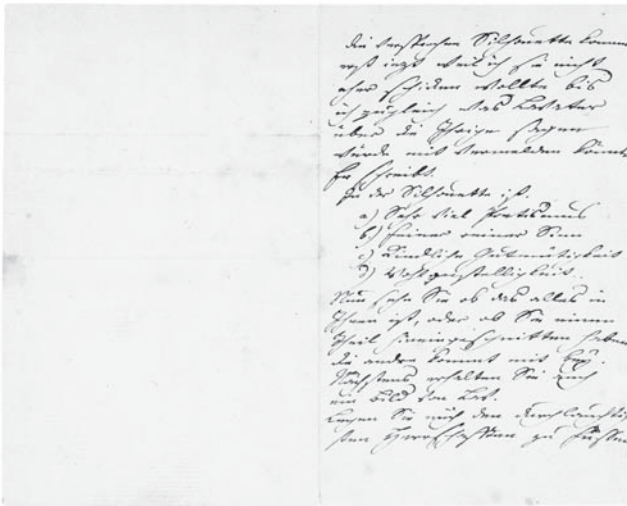 die versprochne Silhouette komm
erst jezt weil ich sie nicht
eher schicken wollte bis
ich zugleich was Lavater
über die Ihrige sagen
würde mit vermelden könnte
Er schreibt.
In der Silhouette ist.
a) Sehr viel
b) feiner reiner Sinn
c) Kindliche Gutmütigkeit
d) Wohlgefälligkeit.
Nun sehn Sie ob das alles in
Ihnen ist, oder ob Sie einen
Theil hineingeschnitten haben
die andre kommt mit
Nächstens erhalten Sie auch
ein Bild von Lav.
Legen Sie mich den durchlauchtig
sten Herrschafften zu Füssen